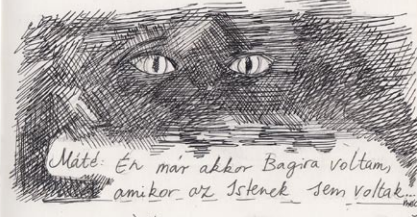 Máté: Én már akkor Bagira voltam,
amikor az Istenek sem voltak...